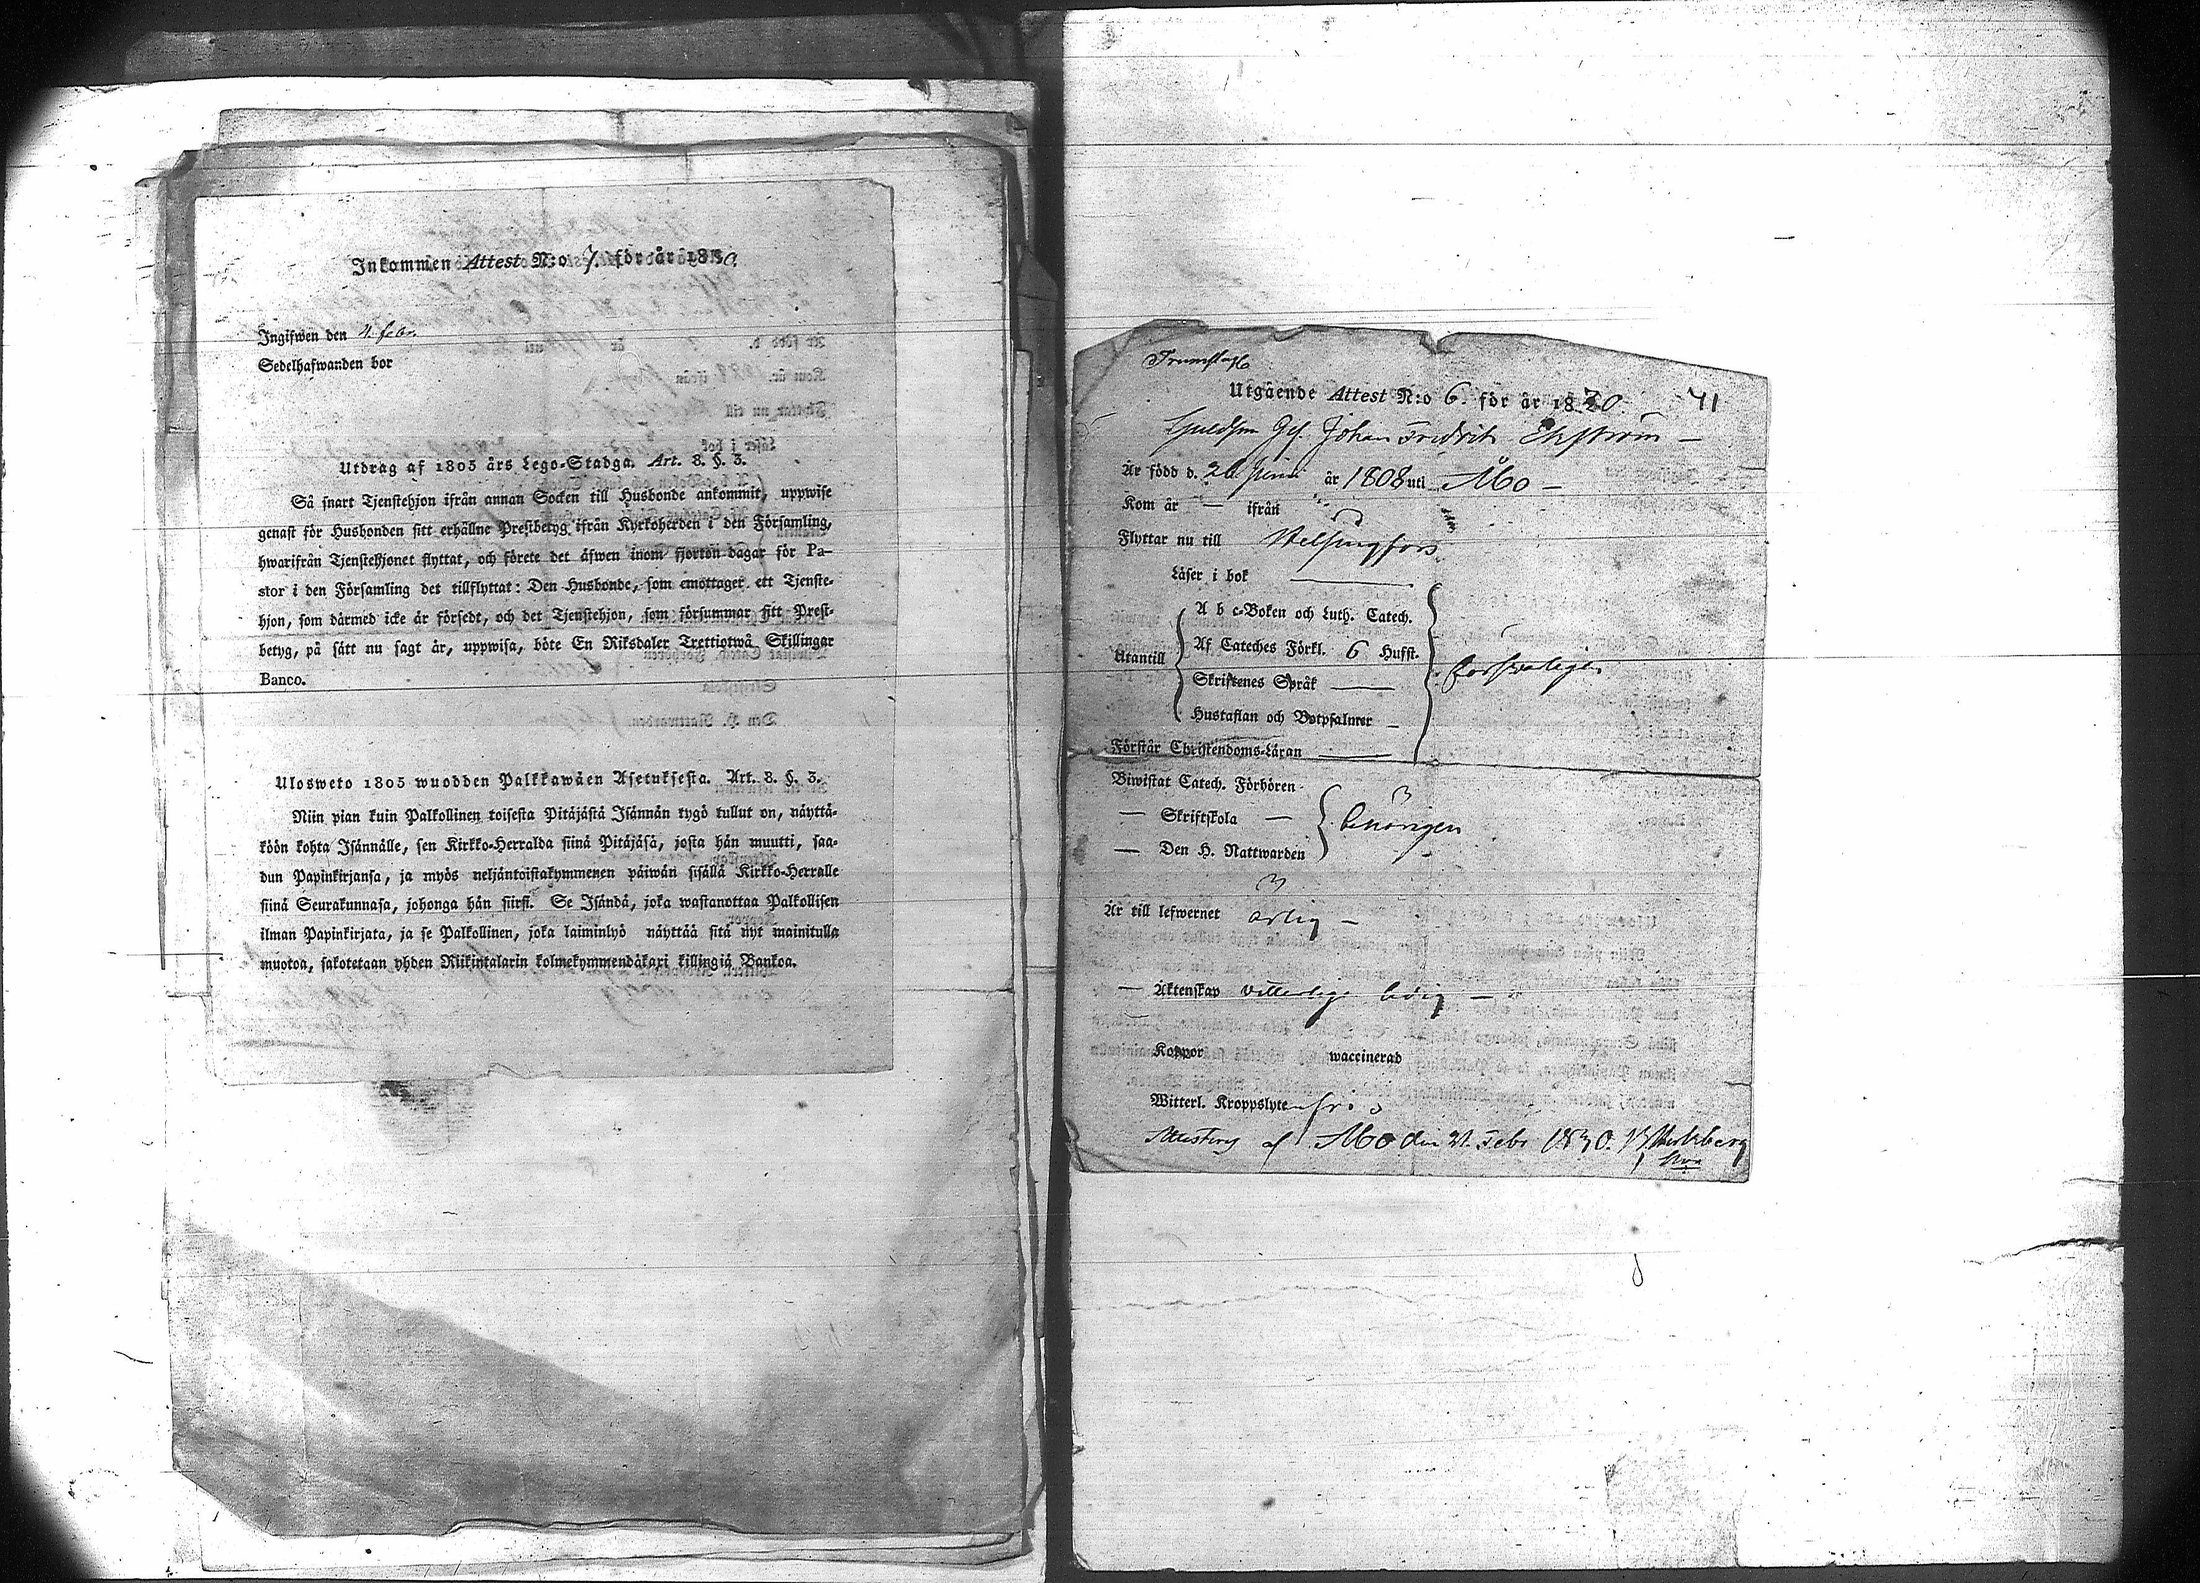 Inkommen Attest N:o 7. för år 1830.
Ingifwen den 4. febr.
Sedelhafwanden bor
Utdrag af 1805 års Lego-Stadga. Art. 8. §. 3.
Så snart Tjenstehjon ifrån annan Socken till Husbonde ankommit, uppwise
genast för Husbonden sitt erhållne Prestbetyg ifrån Kyrkoherden i den Församling,
hwarifrån Tjenstehjonet flyttat, och förete det äfwen inom fjorton dagar för Pa-
stor i den Församling det tillflyttat: Den Husbonde, som emottager ett Tjenste-
hjon, som därmed icke är försedt, och det Tjenstehjon, som försummar sitt Prest-
betyg, på sätt nu sagt är, uppwisa, böte En Riksdaler Trettiotwå Skillingar
Banco.
Ulosweto 1805 wuodden Palkkawäen Asetuksesta. Art. 8. §. 3.
Niin pian kuin Palkollinen toisesta Pitäjästä Isännän tygö tullut on, näyttä-
köön kohta Isännälle, sen Kirkko-Herralda siinä Pitäjäsä, josta hän muutti, saa-
dun Papinkirjansa, ja myös neljäntoistakymmenen päiwän sisällä Kirkko-Herralle
siinä Seurakunnasa, johonga hän siirsi. Se Isändä, joka wastanottaa Palkollisen
ilman Papinkirjata, ja se Palkollinen, joka laiminlyö näyttää sitä nyt mainitulla
muotoa, sakotetaan yhden Riikintalarin kolmekymmendäkaxi killingiä Bankoa.
Utgående Attest N:o 6. för år 1830. 41
Guldsm Ges. Johan Fredrik Ekström —
Är född d. 20 Juni år 1808 uti Åbo —
Kom år — ifrån
Flyttar nu till Helsingfors
Läser i bok
A b c-Boken och Luth. Catech.
Af Cateches Förkl. 6 Hufst.
Utantill
Skriftenes Språk
Hustaflan och Botpsalmer
försvarligen
Förstår Christendoms-Läran
Biwistat Catech. Förhören
— Skriftskola —
behörigen
— Den H. Nattwarden
Är till lefwernet ärlig —
— Äktenskap vitterlige ledig —
Koppor waccinerad
Witterl. Kroppslyte fri
Åbo den 21. Febr 1830.